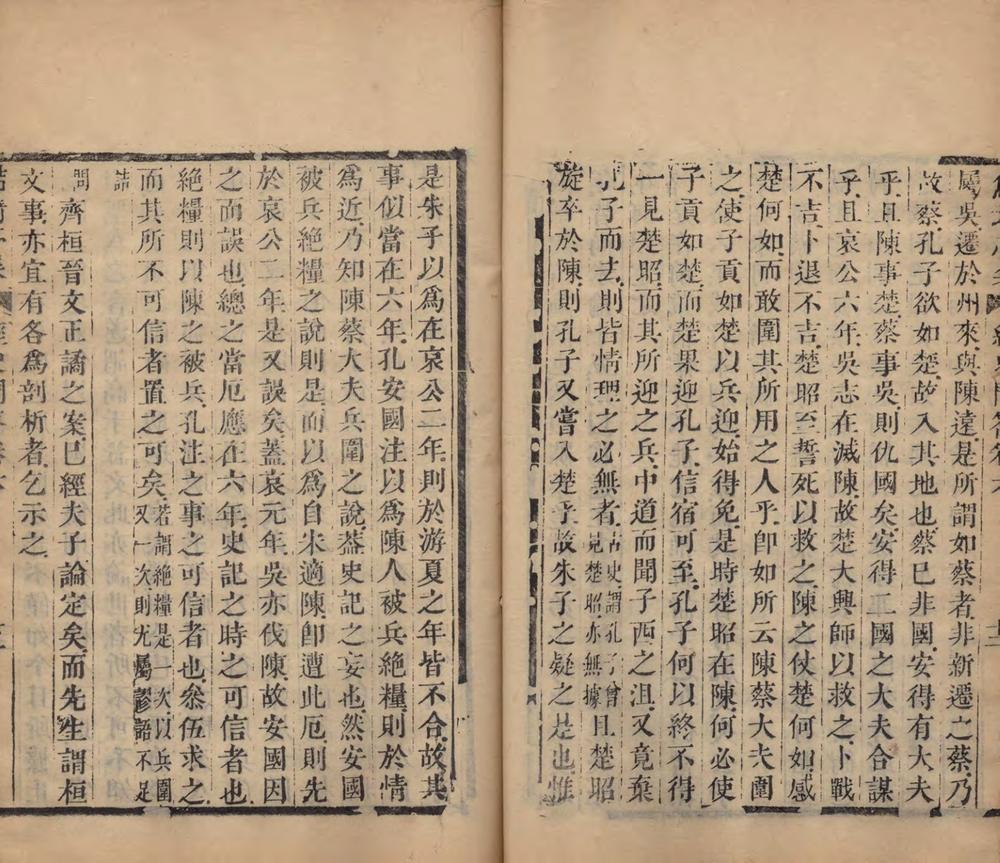 屬吳遷於州來與陳遠是所謂如蔡者非新遷之蔡乃
故蔡孔子欲如楚故入其地也蔡已非國安得有大夫
乎且陳事楚蔡事吳則仇國矣安得二國之大夫合謀
乎且哀公六年吳志在滅陳故楚大興師以救之卜戰
不吉卜退不吉楚昭至誓死以救之陳之仗楚何如感
楚何如而敢圍其所用之人乎卽如所云陳蔡大夫圍
之使子貢如楚以兵迎始得免是時楚昭在陳何必使
子貢如楚而楚果迎孔子信宿可至孔子何以終不得
一見楚昭而其所迎之兵中道而聞子西之沮又竟棄
孔子而去則皆情理之必無者古史謂孔子曾見楚昭亦無據且楚昭
旋卒於陳則孔子又嘗入楚乎故朱子之疑之是也惟
是朱子以爲在哀公二年則於游夏之年皆不合故其
事似當在六年孔安國注以爲陳人被兵絕糧則於情
爲近乃知陳蔡大夫兵圍之說葢史記之妄也然安國
被兵絕糧之說則是而以爲自宋適陳卽遭此厄則先
於哀公二年是又誤矣蓋哀元年吳亦伐陳故安國因
之而誤也總之當厄應在六年史記之時之可信者也
絕糧則以陳之被兵孔注之事之可信者也叅伍求之
而其所不可信者置之可矣若謂絕糧是一次以兵圍又一次則尤屬謬語不足
詰
問齊桓晉文正譎之案已經夫子論定矣而先生謂桓
文事亦宜有各爲剖析者乞示之